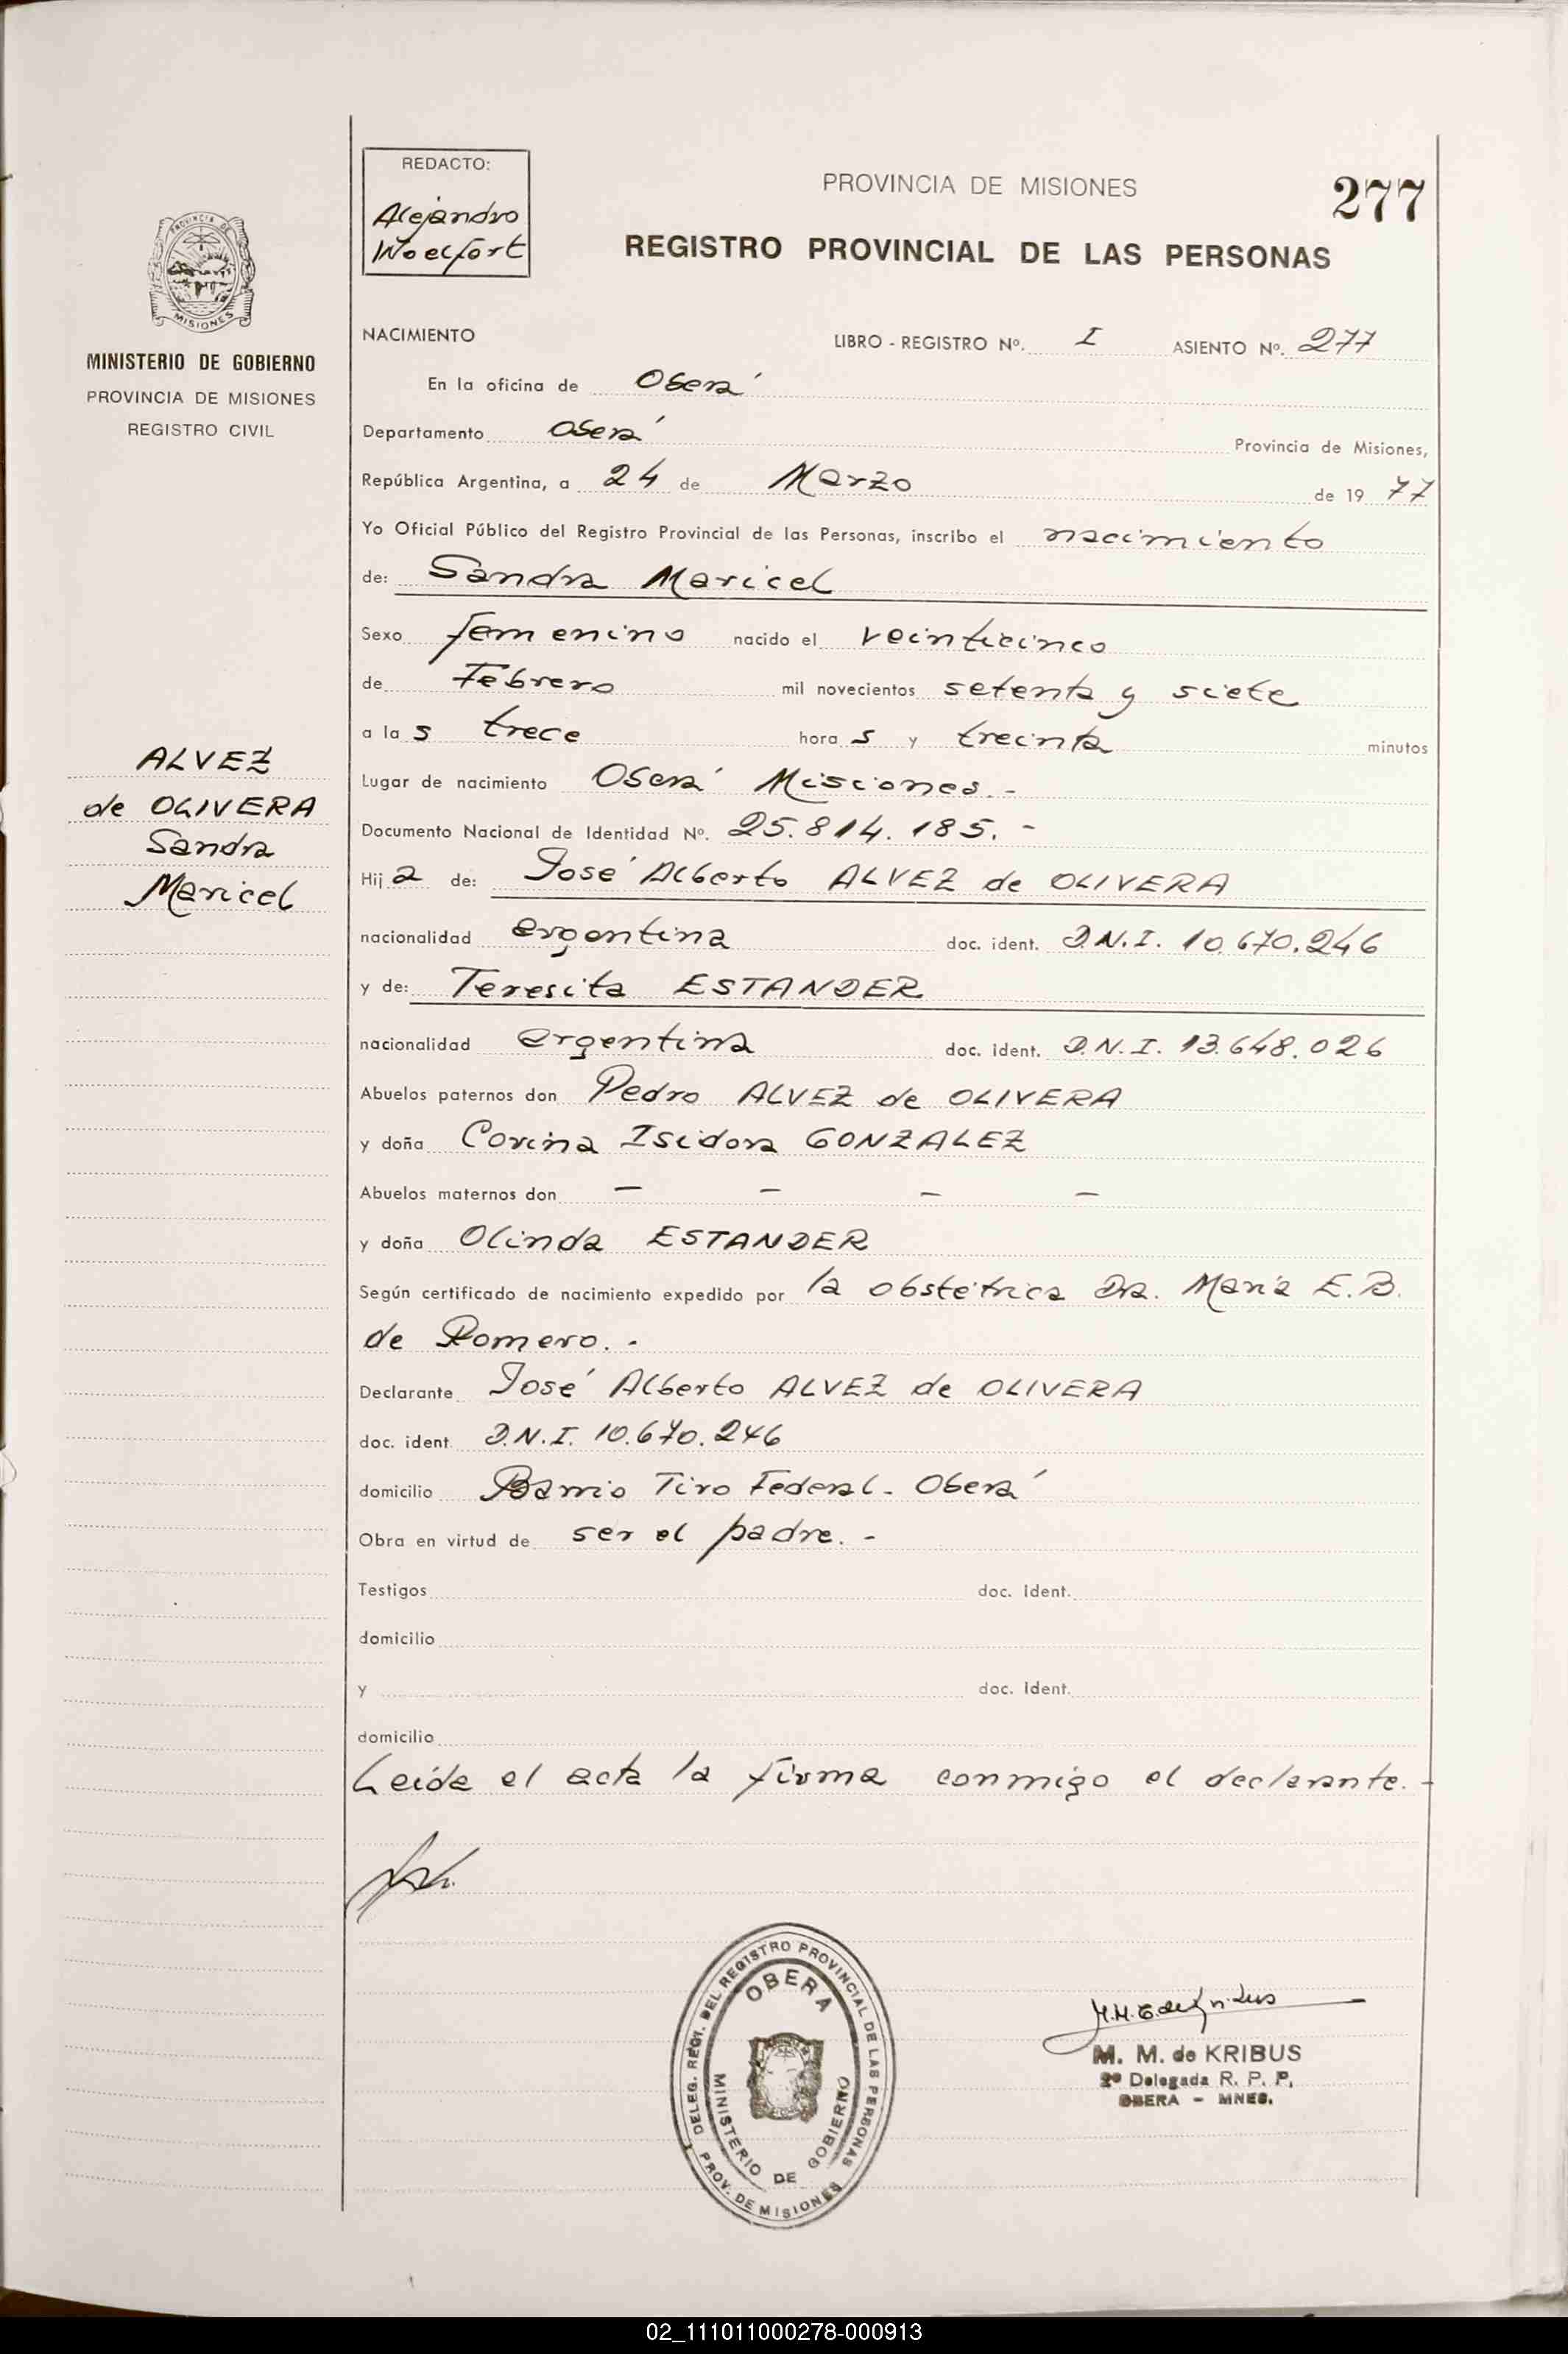 REDACTO:
Alejandro
Woelfort
PROVINCIA DE MISIONES
277
REGISTRO PROVINCIAL DE LAS PERSONAS
PROVINCIA DE
MISIONES
MINISTERIO DE GOBIERNO
PROVINCIA DE MISIONES
REGISTRO CIVIL
NACIMIENTO LIBRO - REGISTRO Nº. I ASIENTO Nº. 277
En la oficina de Oberá
Departamento Oberá Provincia de Misiones,
República Argentina, a 24 de Marzo de 19 77
Yo Oficial Público del Registro Provincial de las Personas, inscribo el nacimiento
de: Sandra Maricel
Sexo femenino nacido el veinticinco
de Febrero mil novecientos setenta y siete
a la s trece hora s y treinta minutos
ALVEZ
de OLIVERA
Sandra
Maricel
Lugar de nacimiento Oberá Misiones.-
Documento Nacional de Identidad Nº. 25.814.185.-
Hij a de: José Alberto ALVEZ de OLIVERA
nacionalidad argentina doc. ident. D.N.I. 10.670.246
y de: Teresita ESTANDER
nacionalidad argentina doc. ident. D.N.I. 13.648.026
Abuelos paternos don Pedro ALVEZ de OLIVERA
y doña Corina Isidora GONZALEZ
Abuelos maternos don — — — —
y doña Olinda ESTANDER
Según certificado de nacimiento expedido por la obstétrica Dra. María E.B.
de Romero.-
Declarante José Alberto ALVEZ de OLIVERA
doc. ident. D.N.I. 10.670.246
domicilio Barrio Tiro Federal - Oberá
Obra en virtud de ser el padre.-
Testigos doc. ident.
domicilio
y doc. ident.
domicilio
Leída el acta la firma conmigo el declarante.-
DELEG. REGI. DEL REGISTRO PROVINCIAL DE LAS PERSONAS
OBERA
MINISTERIO DE GOBIERNO
PROV. DE MISIONES
M. M. de KRIBUS
2ª Delegada R. P. P.
OBERA - MNES.
02_111011000278-000913